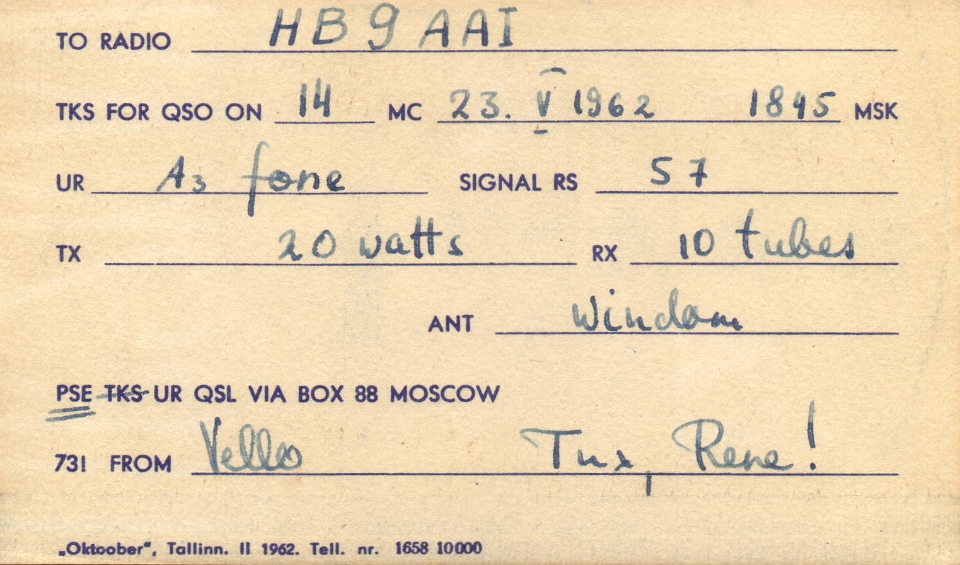 TO RADIO HB9AAI
TKS FOR QSO ON 14 MC 23. V 1962 1845 MSK
UR A3 fone SIGNAL RS 57
TX 20 watts RX 10 tubes
ANT Windom
PSE TKS UR QSL VIA BOX 88 MOSCOW
73! FROM Vello Tnx, Rene!
„Oktoober“, Tallinn. II 1962. Tell. nr. 1658 10000